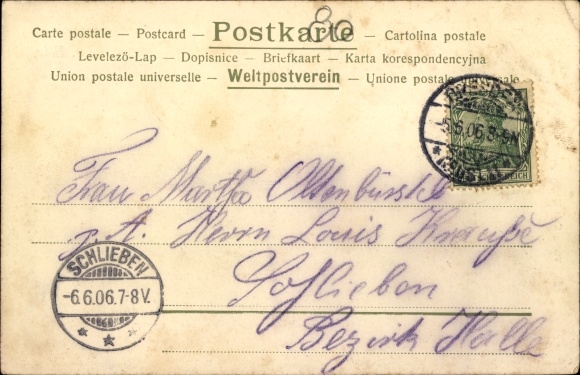 80
Carte postale – Postcard – Postkarte – Cartolina postale
Levelező-Lap – Dopisnice – Briefkaart – Karta korespondencyjna
Union postale universelle – Weltpostverein – Unione postale
DRESDEN
5.6.06.
REICH
Frau Martha Oldenbürstel
p. A. Herrn Louis Krauße
SCHLIEBEN
-6.6.06.7-8V.
Schlieben
Bezirk Halle